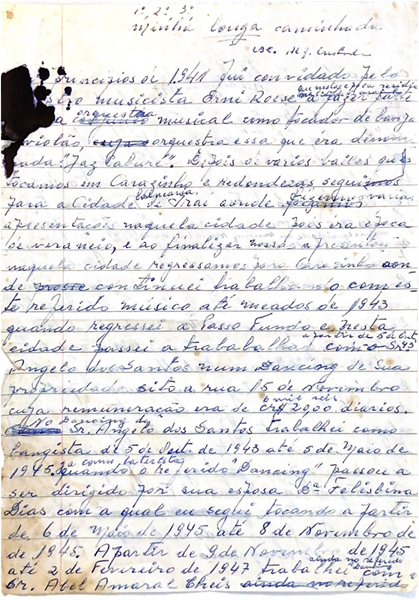 1º 2º 3º
Minha longa caminhada
Princípios de 1941 fui convidado pelo
musicista Erni Roese a fazer parte
a orquestra musical como tocador de banjo
violão, orquestra essa que era denomi
nada "Jaz Cabaré". Depois de varios bailes que
tocamos em Carazinho e redondezas, seguimos
para a Cidade balnearia de Irai aonde fizemos varias
apresentações naquela cidade pois era época
de veraneio, e ao finalizar nossas apresentações
naquela cidade regressamos para Carazinho aon
de continuei trabalhando com es
te referido músico até meados de 1943
quando regressei a Passo Fundo e nesta
cidade passei a trabalhar a partir de 5 de Set. com o Sr.
Angelo dos Santos num Dancing de sua
propriedade sito a rua 15 de Novembro
cuja remuneração era de crz$ 2900 diarios.
No Dancing do Sr. Angelo dos Santos trabalhei como
bangista de 5 de Set. de 1943 até 5 de Maio de
1945. Já como baterista quando o referido "Dancing" passou a
ser dirigido por sua esposa Dª Felisbina
Dias com a qual eu segui tocando a partir
de 6 de Maio de 1945 até 8 de Novembro de
de 1945. A partir de 9 de Novembro de 1945
até 2 de Fevereiro de 1947 trabalhei ainda no referido Dancing com
Sr. Abel Amaral Theis ainda no referido